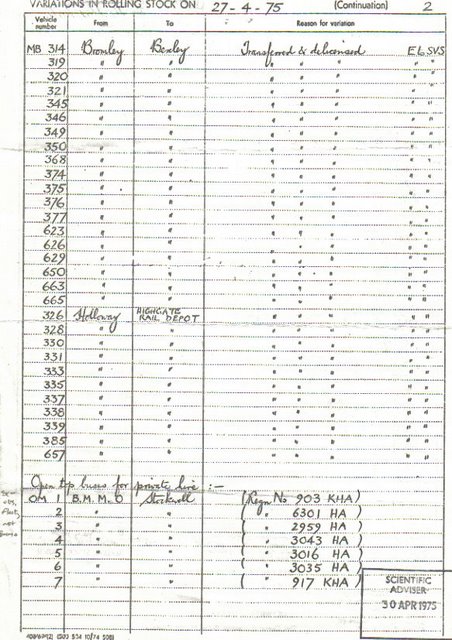 VARIATIONS IN ROLLING STOCK ON 27-4-75 (Continuation) 2
Vehicle number From To Reason for variation
MB 314 Bromley Bexley Transferred & delicensed E L SVS
319 " " " " " " "
320 " " " " " " "
321 " " " " " " "
345 " " " " " " "
346 " " " " " " "
349 " " " " " " "
350 " " " " " " "
368 " " " " " " "
374 " " " " " " "
375 " " " " " " "
376 " " " " " " "
377 " " " " " " "
623 " " " " " " "
626 " " " " " " "
629 " " " " " " "
650 " " " " " " "
663 " " " " " " "
665 " " " " " " "
326 Holloway HIGHGATE RAIL DEPOT " " " " "
328 " " " " " " "
330 " " " " " " "
331 " " " " " " "
333 " " " " " " "
335 " " " " " " "
337 " " " " " " "
338 " " " " " " "
339 " " " " " " "
385 " " " " " " "
657 " " " " " " "
Open top buses for private hire :-
OM 1 B.M.M.O Stockwell (Regn No 903 KHA)
2 " " ( " 6301 HA )
3 " " ( " 2959 HA )
4 " " ( " 3043 HA )
5 " " ( " 3016 HA )
6 " " ( " 3035 HA )
7 " " ( " 917 KHA )
not
SCIENTIFIC
ADVISER
30 APR 1975